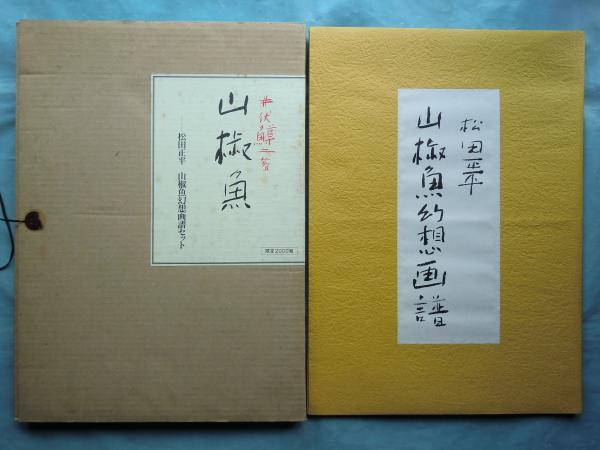 井伏鱒二箸
山椒魚
松田正平　山椒魚幻想画譜セット
限定2000報
松田正平
山椒魚幻想画譜